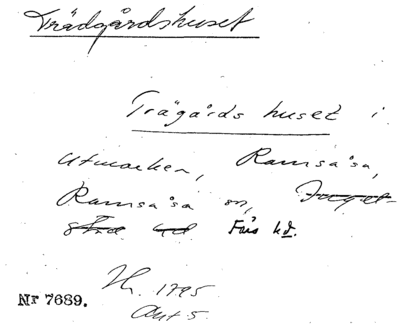 Trädgårdshuset
Trägårds huset i
utmarken, Ramsåsa,
Ramsåsa sn,
Färs hd.
Nr 7689.
1795
Akt 5.